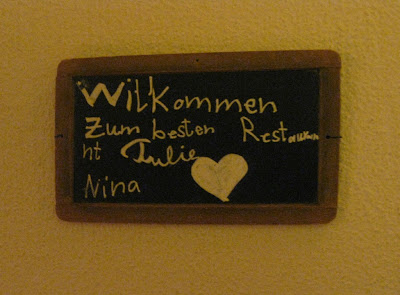 Wilkommen
Zum besten Restaura
nt Julie
Nina